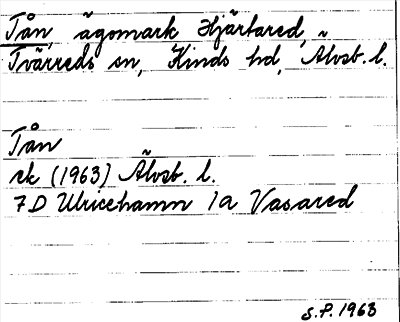 Tån, ägomark Hjärtared,
Tvärreds sn, Kinds hd, Älvsb. l.
Tån
rk (1963) Älvsb. l.
7D Ulricehamn 1a Vasared
S.P. 1963